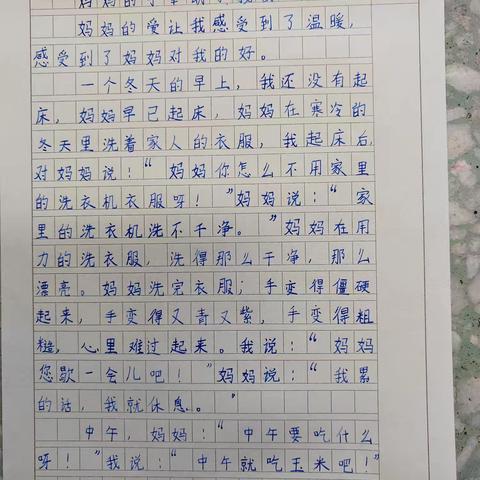 妈妈的爱让我感受到了温暖，
感受到了妈妈对我的好。
一个冬天的早上，我还没有起
床，妈妈早已起床，妈妈在寒冷的
冬天里洗着家人的衣服，我起床后，
对妈妈说：“妈妈你怎么不用家里
的洗衣机衣服呀！”妈妈说：“家
里的洗衣机洗不干净。”妈妈在用
力的洗衣服，洗得那么干净，那么
漂亮。妈妈洗完衣服；手变得僵硬
起来，手变得又青又紫，手变得粗
糙，心里难过起来。我说：“妈妈
您歇一会儿吧！”妈妈说：“我累
的话，我就休息。”
中午，妈妈：“中午要吃什么
呀！”我说：“中午就吃玉米吧！”